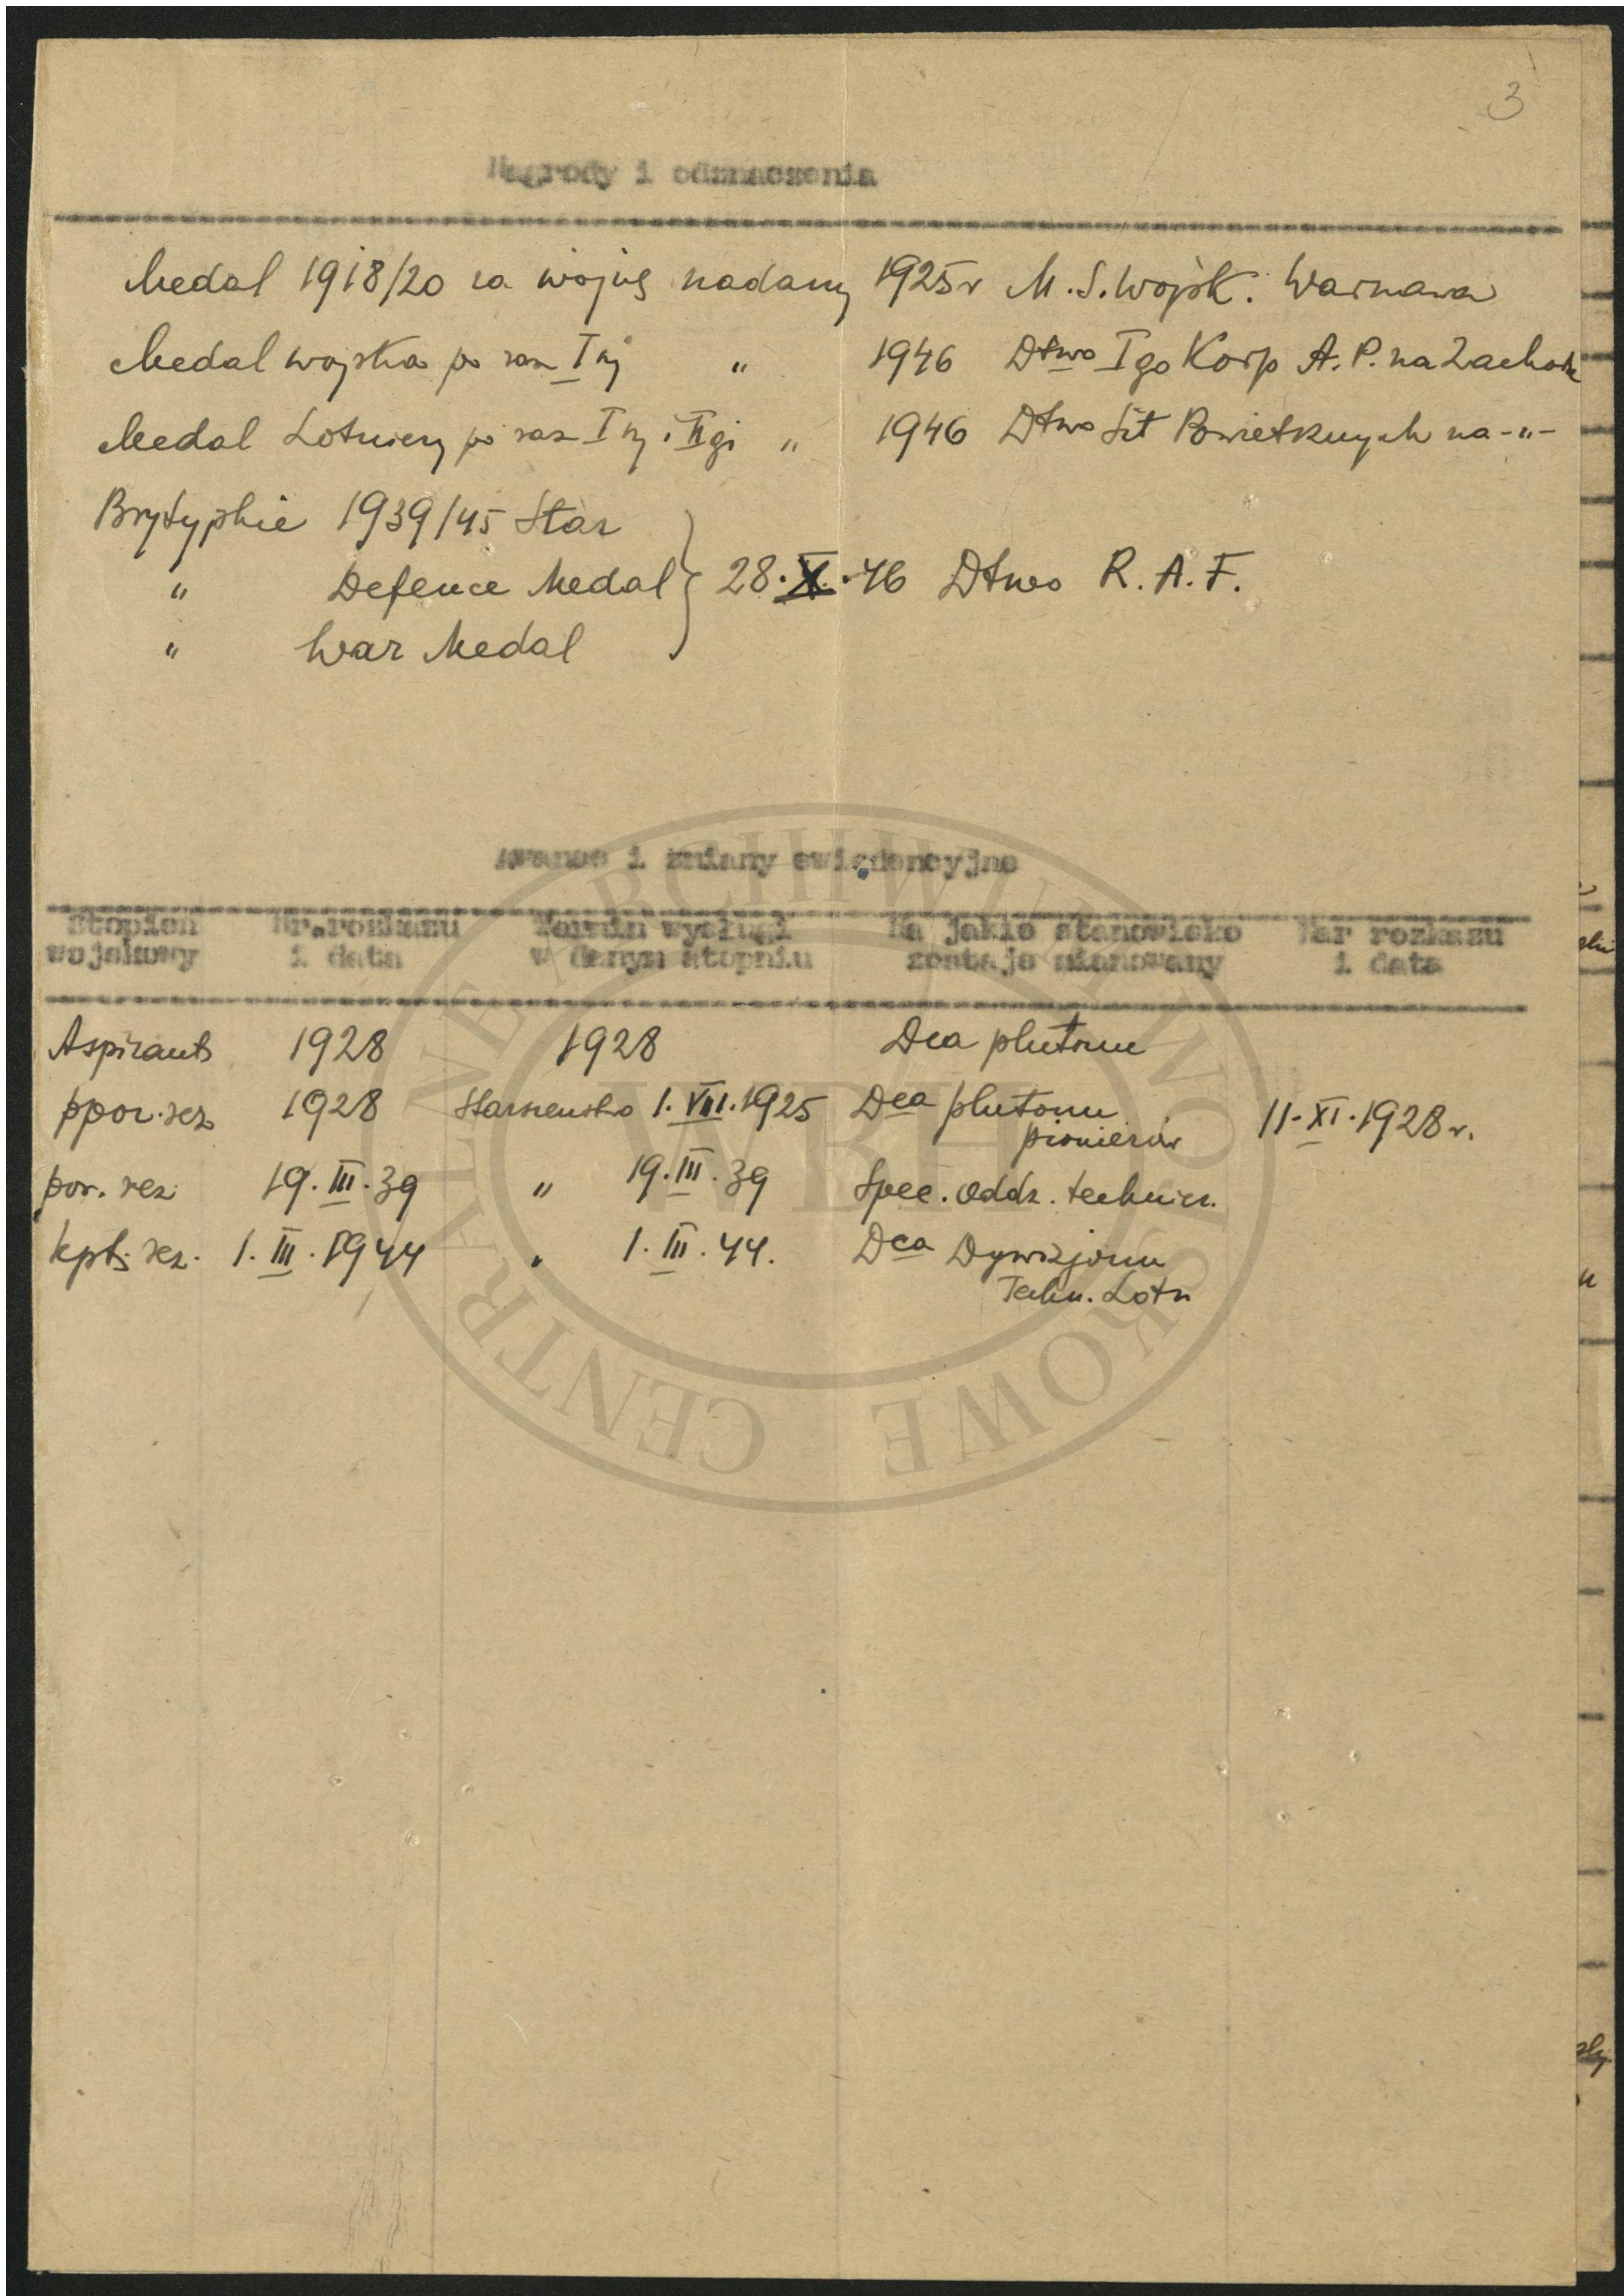 3
Nagrody i odznaczenia
Medal 1918/20 za wojnę nadany 1925r M.S.Wojsk. Warszawa
Medal wojska po raz I szy " 1946 Dtwo Igo Korp A.P. na Zachodz
Medal Lotniczy po raz I szy i IIgi " 1946 Dtwo Sił Powietrznych na -"-
Brytyjskie 1939/45 Star
" Defence Medal } 28.X.46 Dtwo R.A.F.
" War Medal
Awanse i zmiany ewidencyjne
Stopień Nr.rozkazu Termin wysługi Na jakie stanowisko Nar rozkazu
wojskowy i data w danym stopniu zostaje mianowany i data
Aspirant 1928 1928 Dca plutonu
ppor. rez 1928 Starszeństwo 1.VIII.1925 Dca plutonu pionierów 11.XI.1928 r.
por. rez. 19.III.39 " 19.III.39 Spec. oddz. technicz.
kpt. rez. 1.III.1944 " 1.III.44. Dca Dywizjonu
Techn. Lotn
CENTRALNE ARCHIWUM WOJSKOWE
WBH